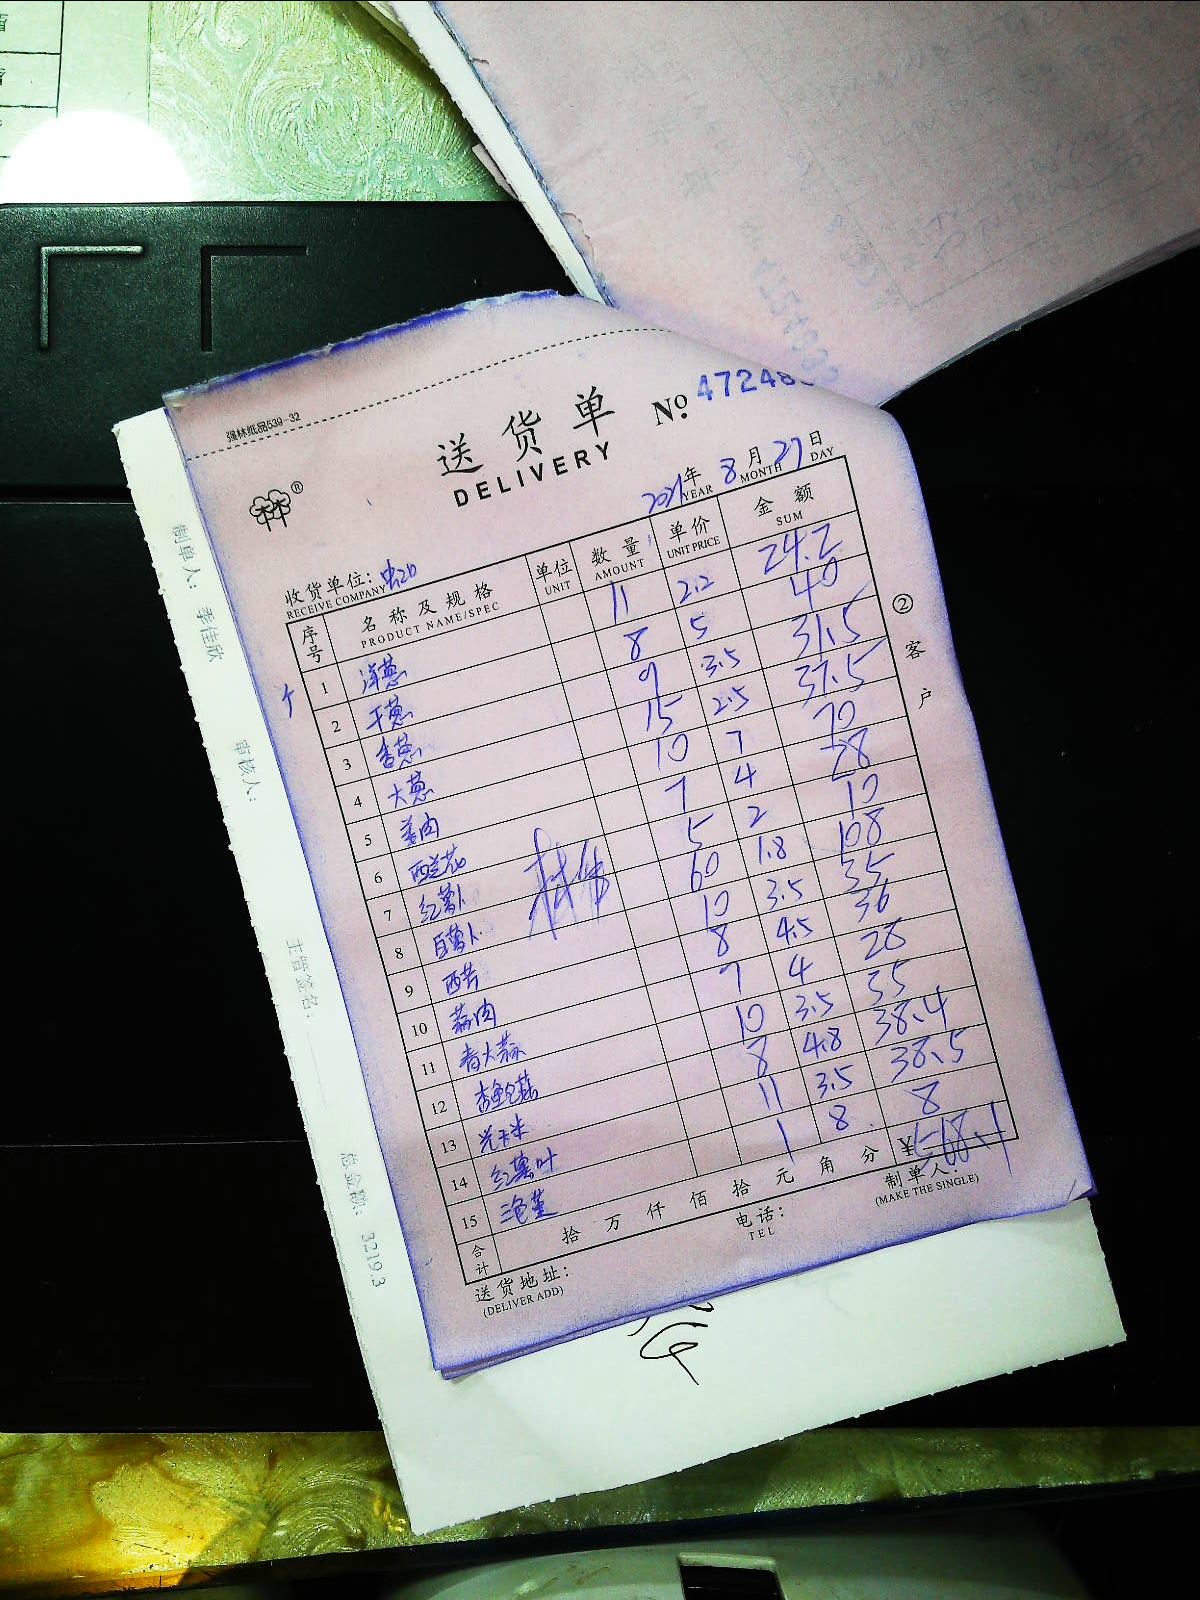 强林纸品539-32
送货单 No 47248
DELIVERY
2021年 8月 27日
YEAR MONTH DAY
收货单位:
RECEIVE COMPANY
序号 名称及规格 单位 数量 单价 金额
PRODUCT NAME/SPEC UNIT AMOUNT UNIT PRICE SUM
1 洋葱 11 2.2 24.2
2 干葱 8 5 40
3 香葱 9 3.5 31.5
4 大葱 15 2.5 37.5
5 姜肉 10 7 70
6 西兰花 7 4 28
7 红萝卜 5 2 10
8 白萝卜 60 1.8 108
9 西芹 10 3.5 35
10 蒜肉 8 4.5 36
11 青大蒜 7 4 28
12 10 3.5 35
13 8 4.8 38.4
14 红薯叶 11 3.5 38.5
15 1 8 8
合计 拾万仟佰拾元角分 ¥568.1
送货地址: 电话: 制单人:
(DELIVER ADD) TEL (MAKE THE SINGLE)
② 客户
制单人: 李佳欣
审核人:
主管签名:
总金额: 3219.3